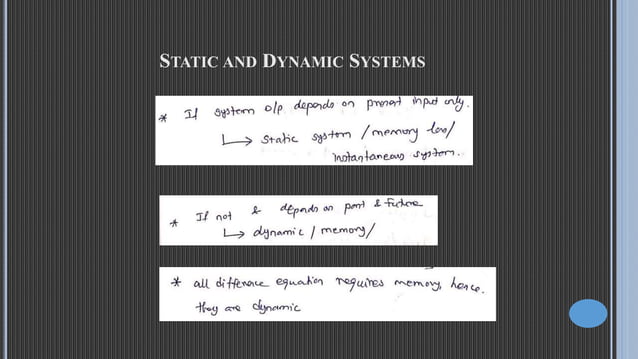 STATIC AND DYNAMIC SYSTEMS
* If system o/p depends on present input only.
↳ static system / memory less/
instantaneous system.
* If not & depends on past & future
↳ dynamic / memory/
* all difference equation requires memory, hence.
they are dynamic